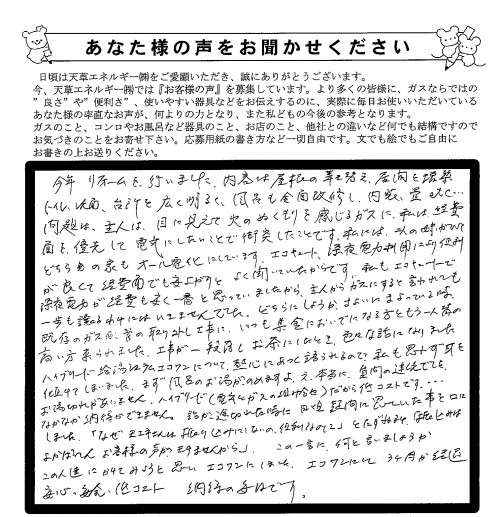 あなた様の声をお聞かせください
日頃は天草エネルギー㈱をご愛顧いただき、誠にありがとうございます。
今、天草エネルギー㈱では『お客様の声』を募集しています。より多くの皆様に、ガスならではの
”良さ”や”便利さ”、使いやすい器具などをお伝えするのに、実際に毎日お使いいただいている
あなた様の率直なお声が、何よりの力となり、また私どもの今後の参考となります。
ガスのこと、コンロやお風呂など器具のこと、お店のこと、他社との違いなど何でも結構ですので
お気づきのことをお寄せ下さい。応募用紙の書き方など一切自由です。文でも絵でもご自由に
お書きの上お送りください。
今年リフォームを行いました。内容は屋根の葺き替え、居間を増築
トイレ、洗面、台所を広く明るく、風呂も全面改修し、内装、畳 etc…
問題は、主人は、目に見えて火のぬくもりを感じるガスに、私は、経費
面を優先して電気にしたいとことで衝突したことです。私には、
どちらの家もオール電化にしています。エコキュート、深夜電力利用により便利
が良くて経費面でも安上がりとよく聞いていたからです。私もエコキュートで
深夜電力が経費も安く一番と思っていましたから、主人からガスにすると言われても
一歩も譲るわけにはいきませんでした。どちらにしようか、さまよいにまよっている時、
既存のガス風呂等の取り外し工事に、いつも集金においでになる方ともう一人等の
高い方来られました。工事が一段落しお茶にしたとこ、色々な話になりました
ハイブリッド給湯システムエコワンについて、熱心にあつく語られるので、私も思わず耳を
傾けてしまいました。まず風呂のお湯がのめますよ。え、本当に、
お湯切れがありません。ハイブリッド(電気とガスの組み合せ)だから低コストです。・・・
なかなか納得ができません。話が進められた時に日頃疑問に思っていた事を口に
しました。「なぜ天エネさんは振り込みにしないの、便利なのに」とたずねます。「振り込みは
よかばってん、お客様の声がききませんから」。この一言に、何と言いましょうか
この人達にかけてみようと思いエコワンにしました。エコワンにして3ヶ月が経過
安心・安全・低コスト 納得の毎日です。